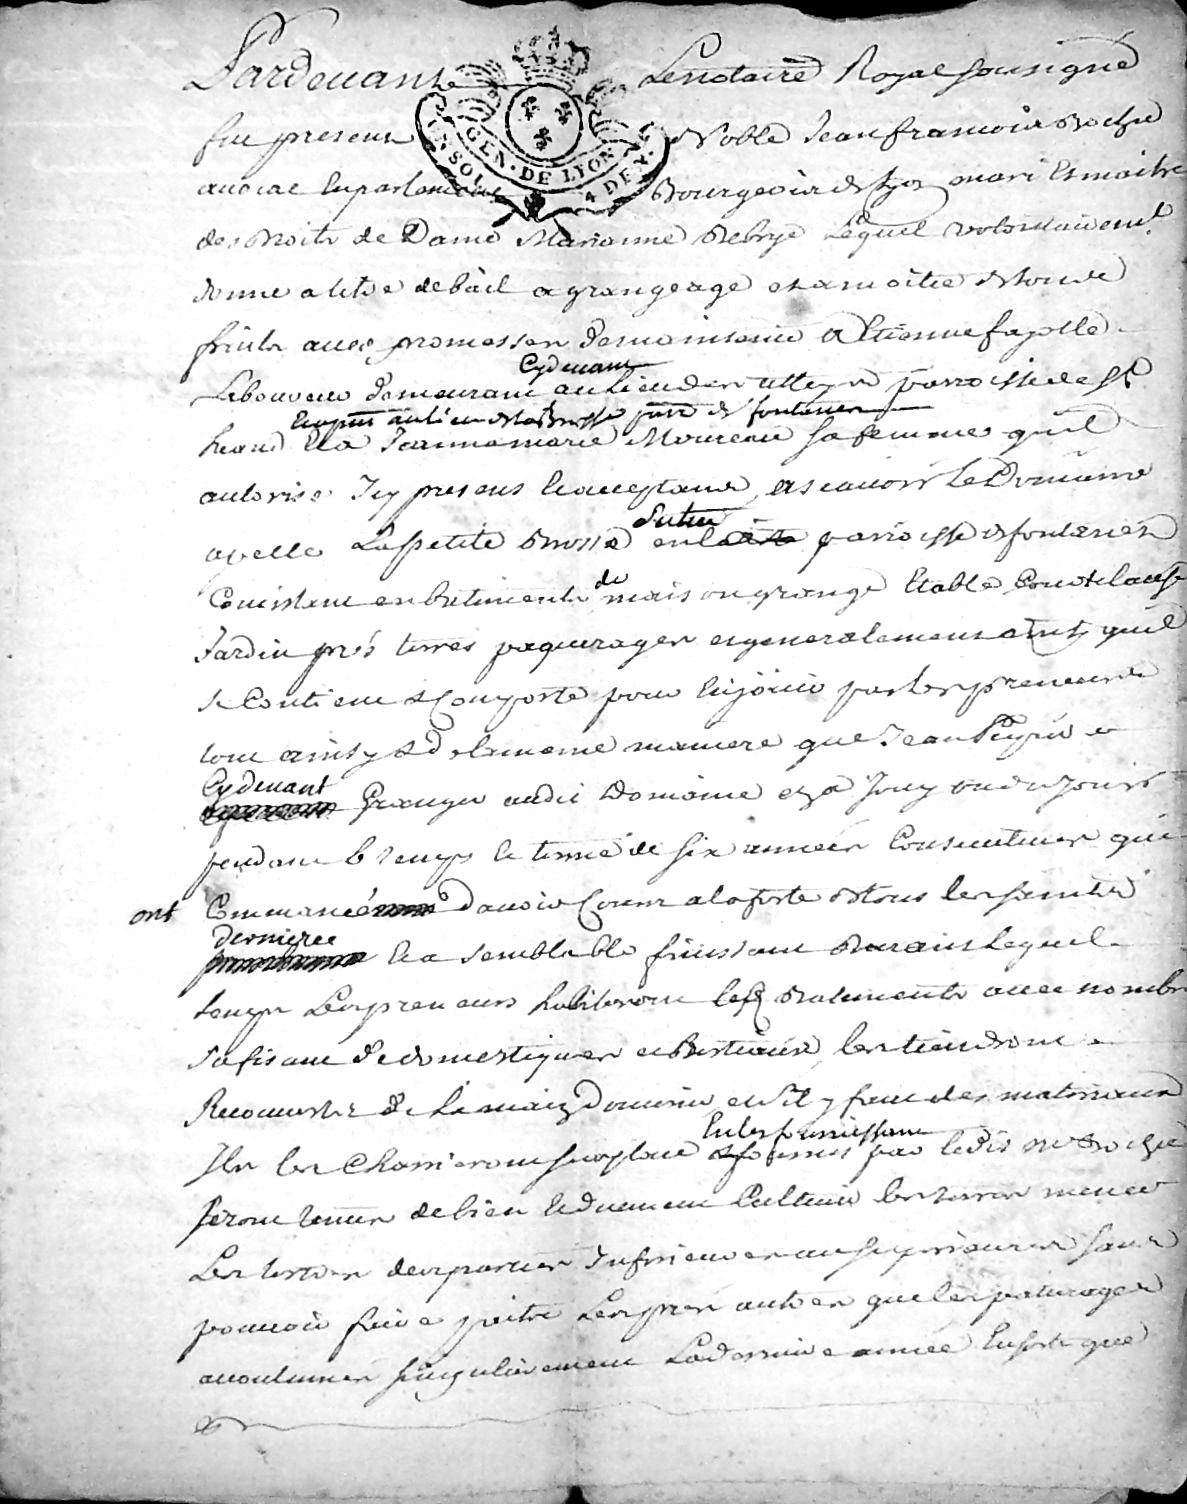 Pardevant Le notaire Royal Sousigné
fut present Noble Jean francois Roche
avocat En parlement Bourgeois de Lyon mari Et maitre
des Droits de Dame Marianne Lequel volontairemt
donne a titre de bail a grangeage et a moitié de tous
fruits avec promesses de maintenir a Etienne fayolle
Cydevant
Laboureur demeurant au Lieu des parroisse de St
Et a present au lieu de la Brosse parr de fontanes
heand Et a Jeanne marie Moureau sa femme quil
autorise Icy presens Et acceptans, a scavoir Le Domaine
Situé
apellé La petite Brosse en la parroisse de fontanes
de
Consistant en batiments maison grange Etable Cour
Jardin prés terres paquerages et generalement ainsy quil
se Contient & Comporte pour En jouir par les preneurs
tout ainsy & de la meme maniere que Jean
Cydevant
Granger audit Domaine en a Jouy ou du Jouir
pendant le temps et terme de six années Consecutives qui
ont Commancé davoir Cours a la feste de tous les saints
derniere
Et a semblable finissant Durant Lequel
temps Les preneurs habiteront lesd Batiments avec nombre
sufisant de domestiques et Bestiaux, les tiendront
Recouverts de Domaine, et s'il y faut des materiaux
En les fournissant
Ils les Charrieront sur place par ledit Mr Roche
seront tenus de bien Et duement Cultiver les terres mener
Les terres des parties Inferieures aux superieures sans
pouvoir faire paitre Les prés autres que les paturages
accoutumés singulierement La derniere année En sorte que
GEN · DE LYON
UN SOL 4 DEN.